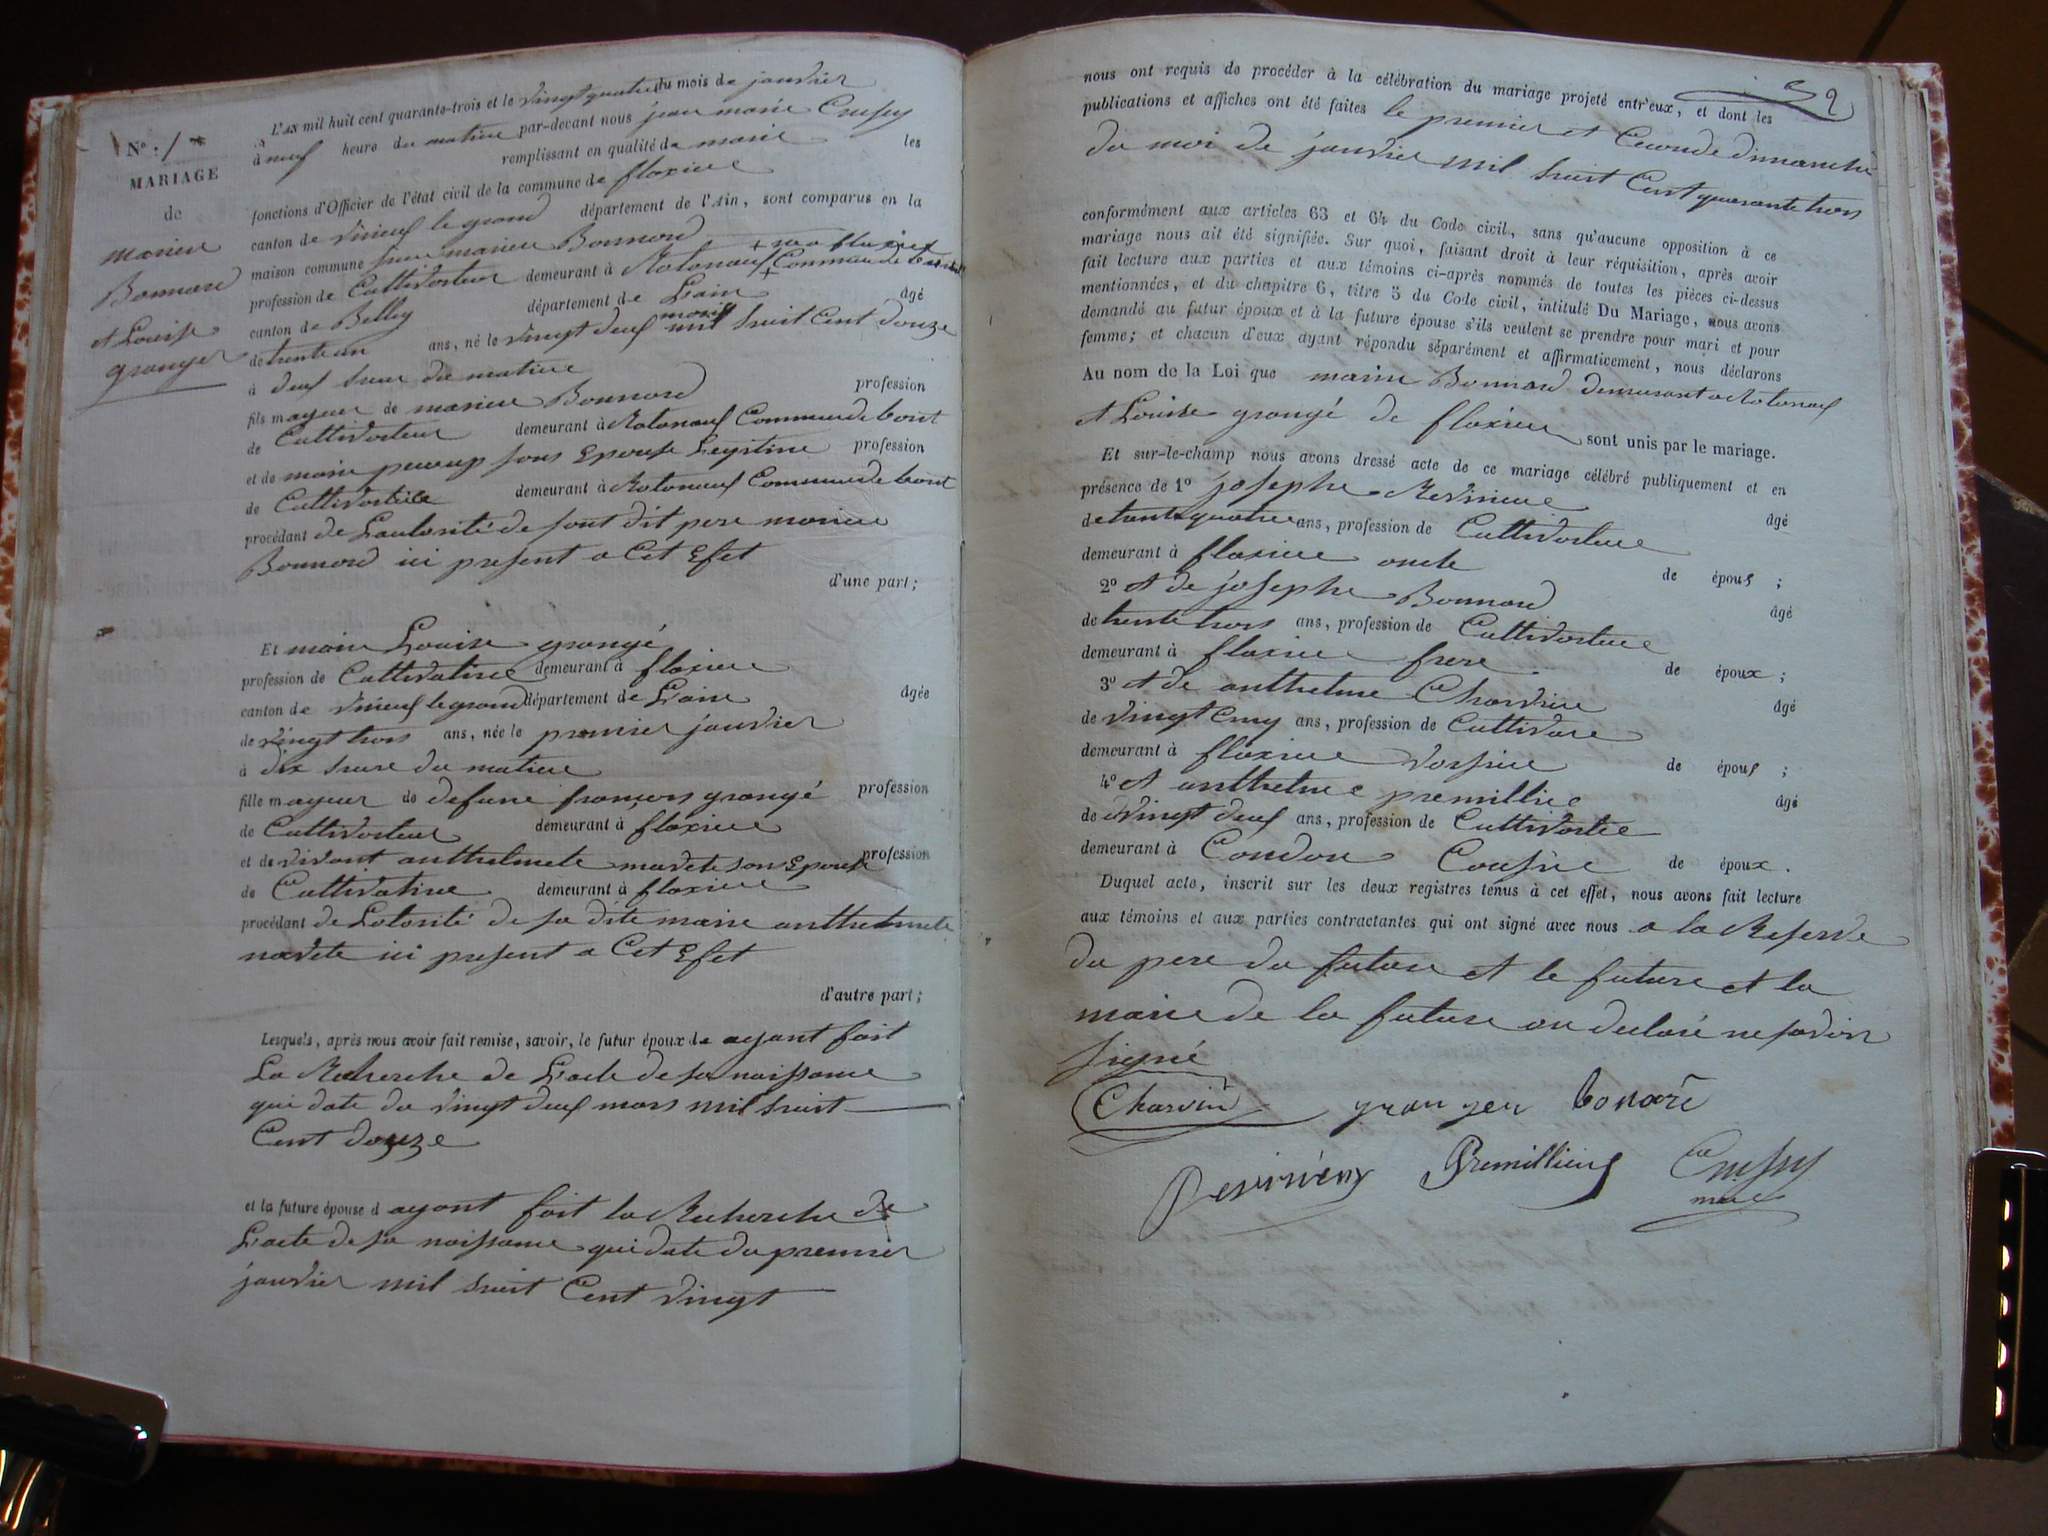 N°: 1
MARIAGE
de
marieu
Bonnard
et Louise
granger
L'AN mil huit cent quarante-trois et le vingt quatre du mois de janvier
à neuf heure du matin par-devant nous jean marie Crussy
remplissant en qualité de maire les
fonctions d'Officier de l'état civil de la commune de flaxieu
canton de virieu le grand département de l'Ain, sont comparus en la
maison commune marieu Bonnard
profession de Cultivateur demeurant à Rotonaud Commune de
canton de Belley département de Lain âgé
de trente un ans, né le vingt deuf mars mil huit Cent douze
à deuf heur du matin
fils mayeur de marieu Bonnard profession
de Cultivateur demeurant à Rotonaud Commune de
et de marie son Epouse Legitime profession
de demeurant à Rotonaud Commune de
procédant de Lautorité de sont dit pere marieu
Bonnard ici present a Cet Efet
d'une part;
Et marie Louise grangé
profession de Cultivatrice demeurant à flaxieu
canton de virieu le grand département de Lain âgée
de vingt trois ans, née le premier janvier
à dix heure du matin
fille mayeur de defunt françois grangé profession
de Cultivateur demeurant à flaxieu
et de vivant anthelmete son Epouse profession
de Cultivatrice demeurant à flaxieu
procédant de Lotorité de sa dite maire anthelmete
navete ici present a Cet Efet
d'autre part;
Lesquels, après nous avoir fait remise, savoir, le futur époux de ayant fait
La Recherche de Lacte de sa naissance
qui date du vingt deuf mars mil huit
Cent douze
et la future épouse d ayant fait la Recherche de
Lacte de sa naissance qui date du premier
janvier mil huit Cent vingt
2
nous ont requis de procéder à la célébration du mariage projeté entr'eux, et dont les
publications et affiches ont été faites le premier et Cecond dimanche
du moi de janvier mil huit Cent quarante trois
conformément aux articles 63 et 64 du Code civil, sans qu'aucune opposition à ce
mariage nous ait été signifiée. Sur quoi, faisant droit à leur réquisition, après avoir
fait lecture aux parties et aux témoins ci-après nommés de toutes les pièces ci-dessus
mentionnées, et du chapitre 6, titre 5 du Code civil, intitulé Du Mariage, nous avons
demandé au futur époux et à la future épouse s'ils veulent se prendre pour mari et pour
femme; et chacun d'eux ayant répondu séparément et affirmativement, nous déclarons
Au nom de la Loi que marieu Bonnard demeurant a Rotonaud
et Louise grangé de flaxieu sont unis par le mariage.
Et sur-le-champ nous avons dressé acte de ce mariage célébré publiquement et en
présence de 1° josephe
de trente quatre ans, profession de Cultivateur âgé
demeurant à flaxieu oncle de épous ;
2° et de josephe Bonnard âgé
de trente trois ans, profession de Cultivateur
demeurant à flaxieu frere de époux ;
3° et de anthelme Charvin âgé
de vingt Cinq ans, profession de
demeurant à flaxieu de épous ;
4° et anthelme premillieu âgé
de vingt deuf ans, profession de
demeurant à Condon Cousin de époux.
Duquel acte, inscrit sur les deux registres tenus à cet effet, nous avons fait lecture
aux témoins et aux parties contractantes qui ont signé avec nous a la Reserve
du pere du future et le future et la
maire de la future on declaré ne savoir
signé
Charvin granger bonard
Premillieu Crussy
maire